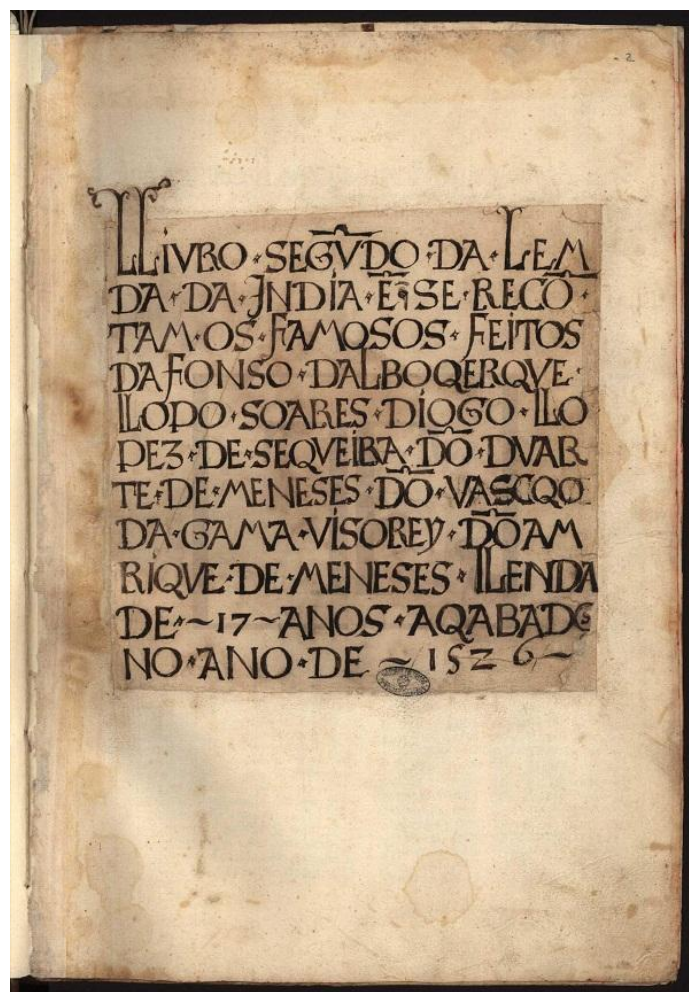 2
LLIVRO · SEGV̄DO · DA · LEM
DA · DA · INDIA · Ē q̃ SE · RECŌ ·
TAM · OS · FAMOSOS · FEITOS
DAFONSO · DALBOQERQVE ·
LLOPO · SOARES · DIOGO · LLO
PEZ · DE · SEQVEIRA · DŌ · DVAR
TE · DE · MENESES · DŌ · VASCQO
DA · GAMA · VISOREY · DŌ AM
RIQVE · DE · MENESES · LLENDA
DE · ~ 17 ~ ANOS · AQABADOS
NO · ANO · DE ~ 1526 ~